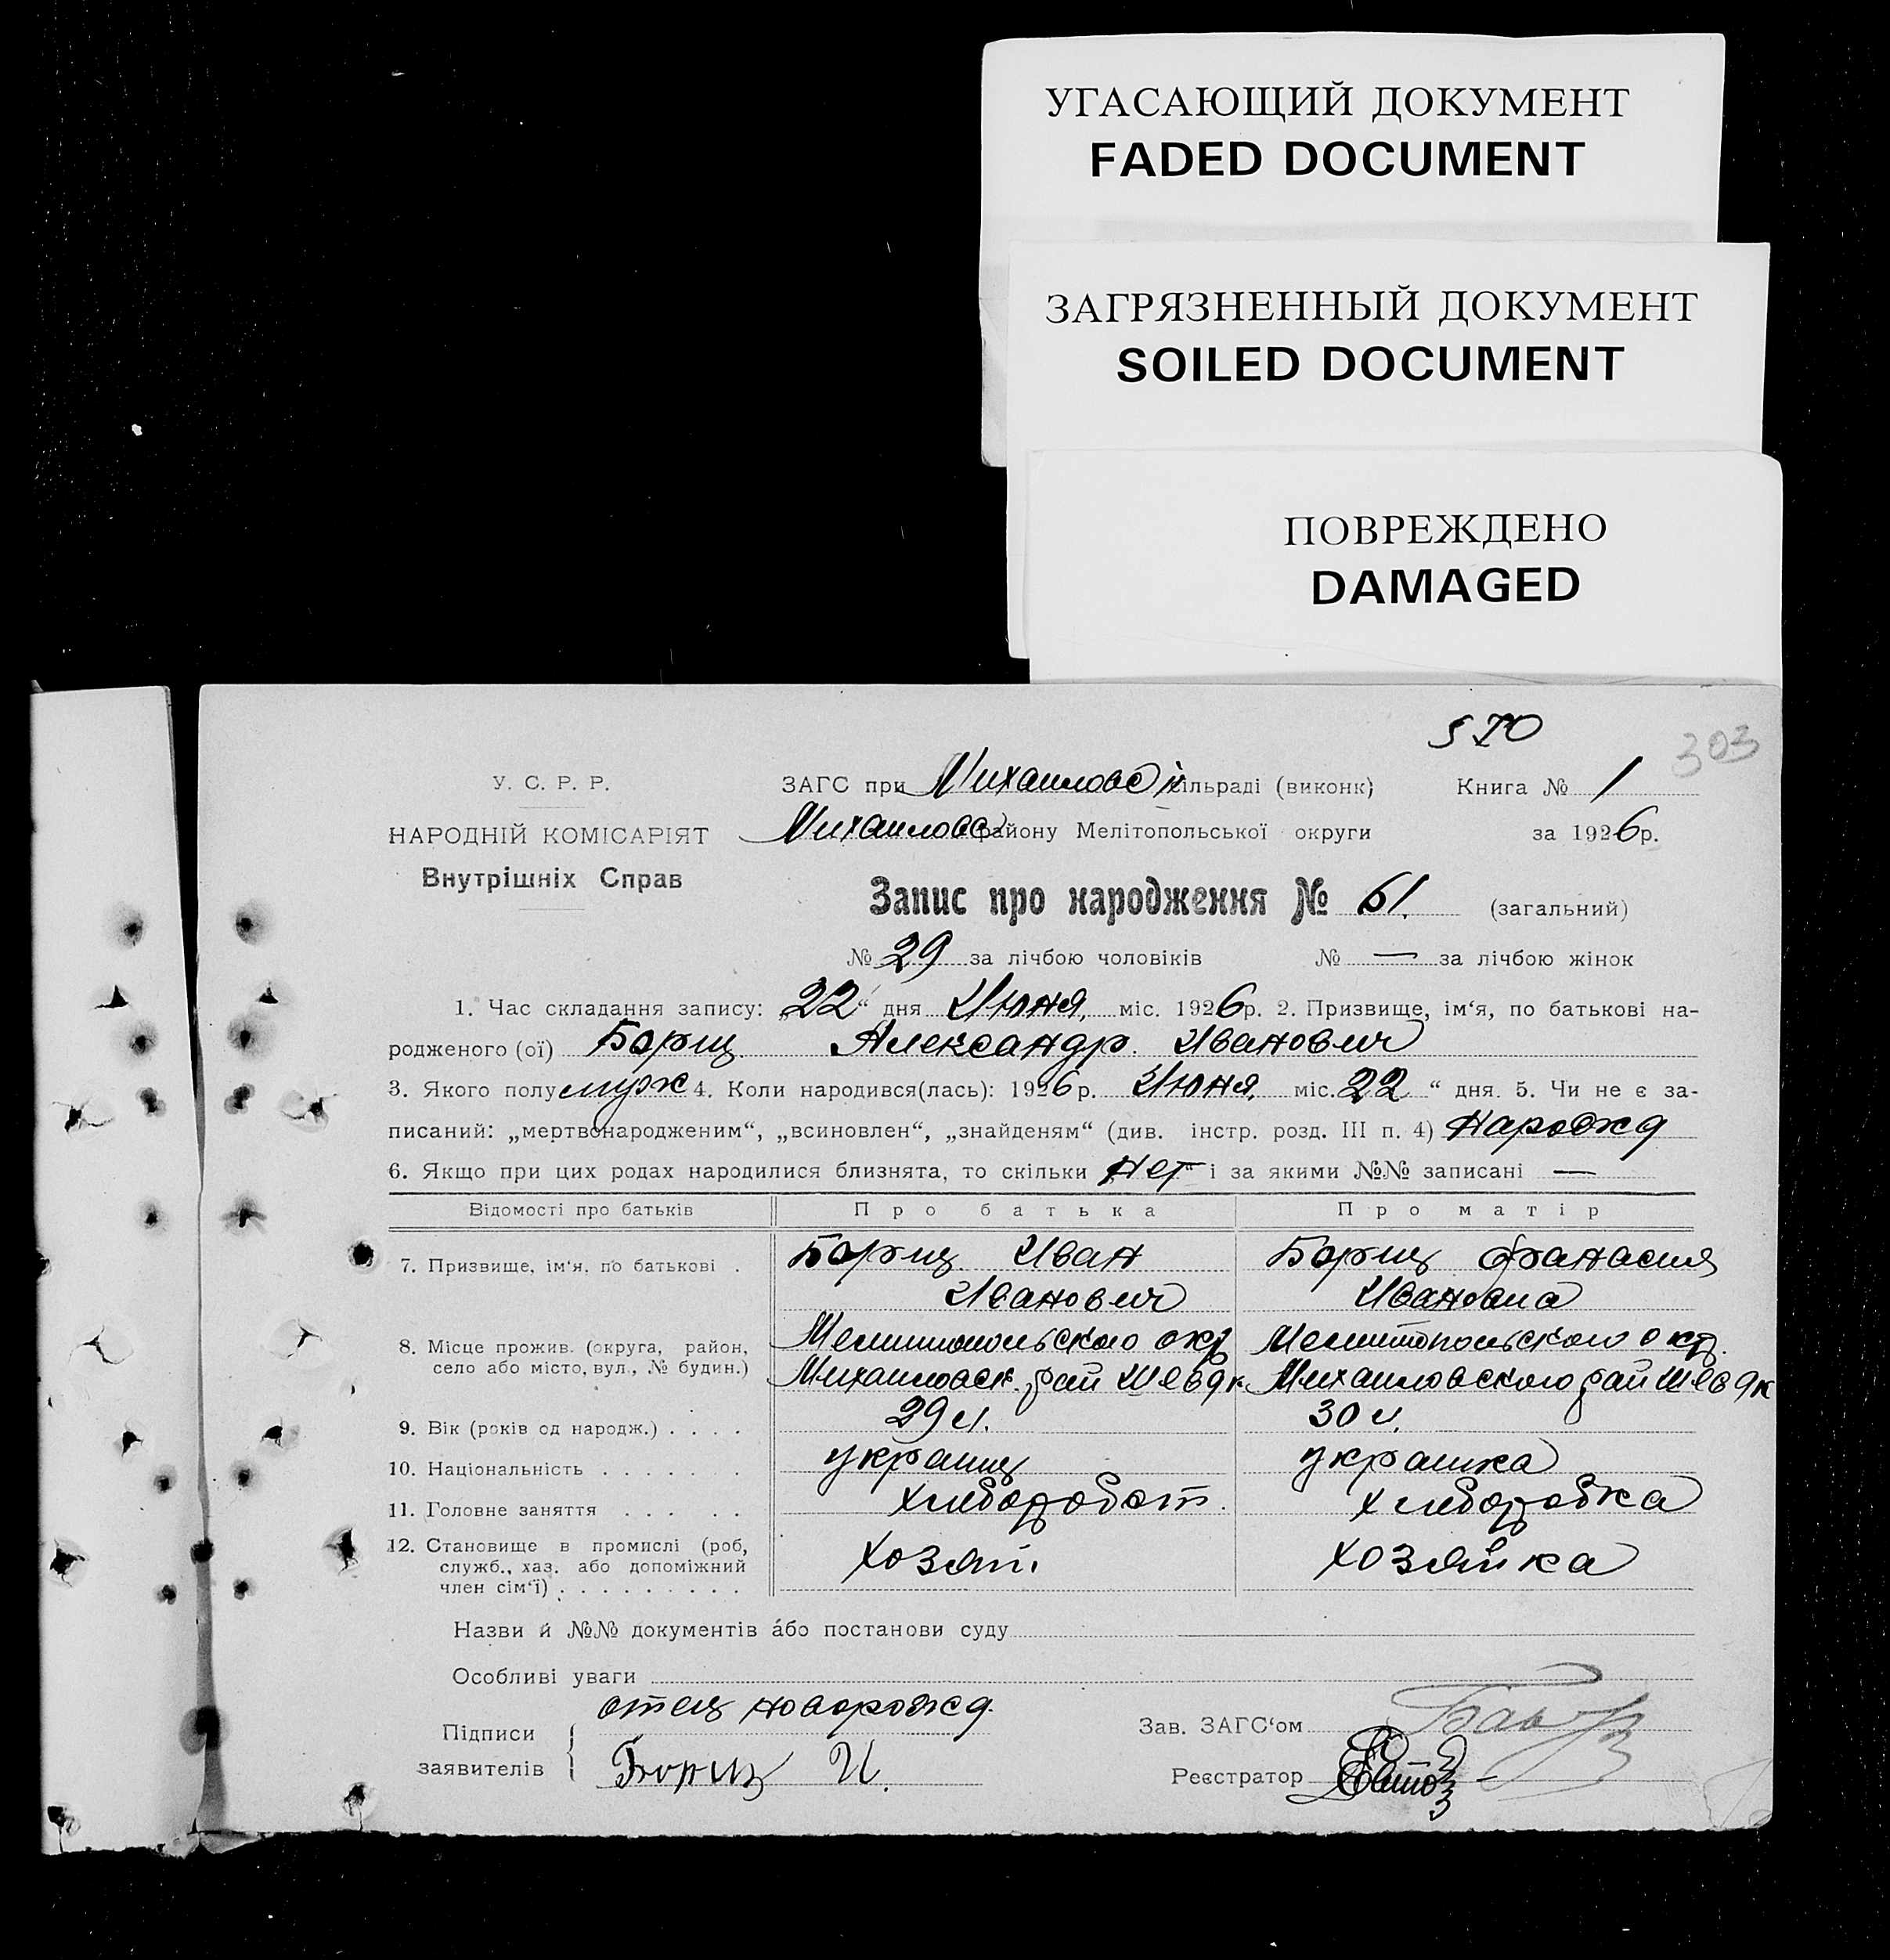 УГАСАЮЩИЙ ДОКУМЕНТ
FADED DOCUMENT
ЗАГРЯЗНЕННЫЙ ДОКУМЕНТ
SOILED DOCUMENT
ПОВРЕЖДЕНО
DAMAGED
570
303
У. С. Р. Р.
НАРОДНІЙ КОМІСАРІЯТ
Внутрішніх Справ
ЗАГС при Михайловс й сільраді (виконк) Книга № 1
Михайловс району Мелітопольської округи за 1926р.
Запис про народження № 61. (загальний)
№ 29 за лічбою чоловіків № — за лічбою жінок
1. Час складання запису: „22“ дня Июня, міс. 1926р. 2. Призвище, ім‘я, по батькові на-
родженого (ої) Борщ Александр Иванович
3. Якого полу муж 4. Коли народився(лась): 1926р. Июня, міс. 22 “ дня. 5. Чи не є за-
писаний: „мертвонародженим“, „всиновлен“, „знайденям“ (див. інстр. розд. III п. 4) Нарожд
6. Якщо при цих родах народилися близнята, то скільки Нет і за якими №№ записані —
Відомості про батьків Про батька Про матір
7. Призвище, ім‘я, по батькові . Борщ Иван Борщ Афанасия
Иванович Ивановна
8. Місце прожив. (округа, район, село або місто, вул., № будин.) Мелитопольского окр Мелитопольского окр.
Михайловск. рай Шевдк Михайловского рай Шевдк
9. Вік (років од народж.) . . . . 29 л. 30 л.
10. Національність . . . . . . . украинц украинка
11. Головне заняття . . . . . хлебороб хлеборобка
12. Становище в промислі (роб, служб., хаз. або допоміжний член сім‘ї) . . . . . . . . . хозяин хозяйка
Назви й №№ документів або постанови суду
Особливі уваги
отец новорожд.
Підписи заявителів Борщ И.
Зав. ЗАГС‘ом
Реєстратор